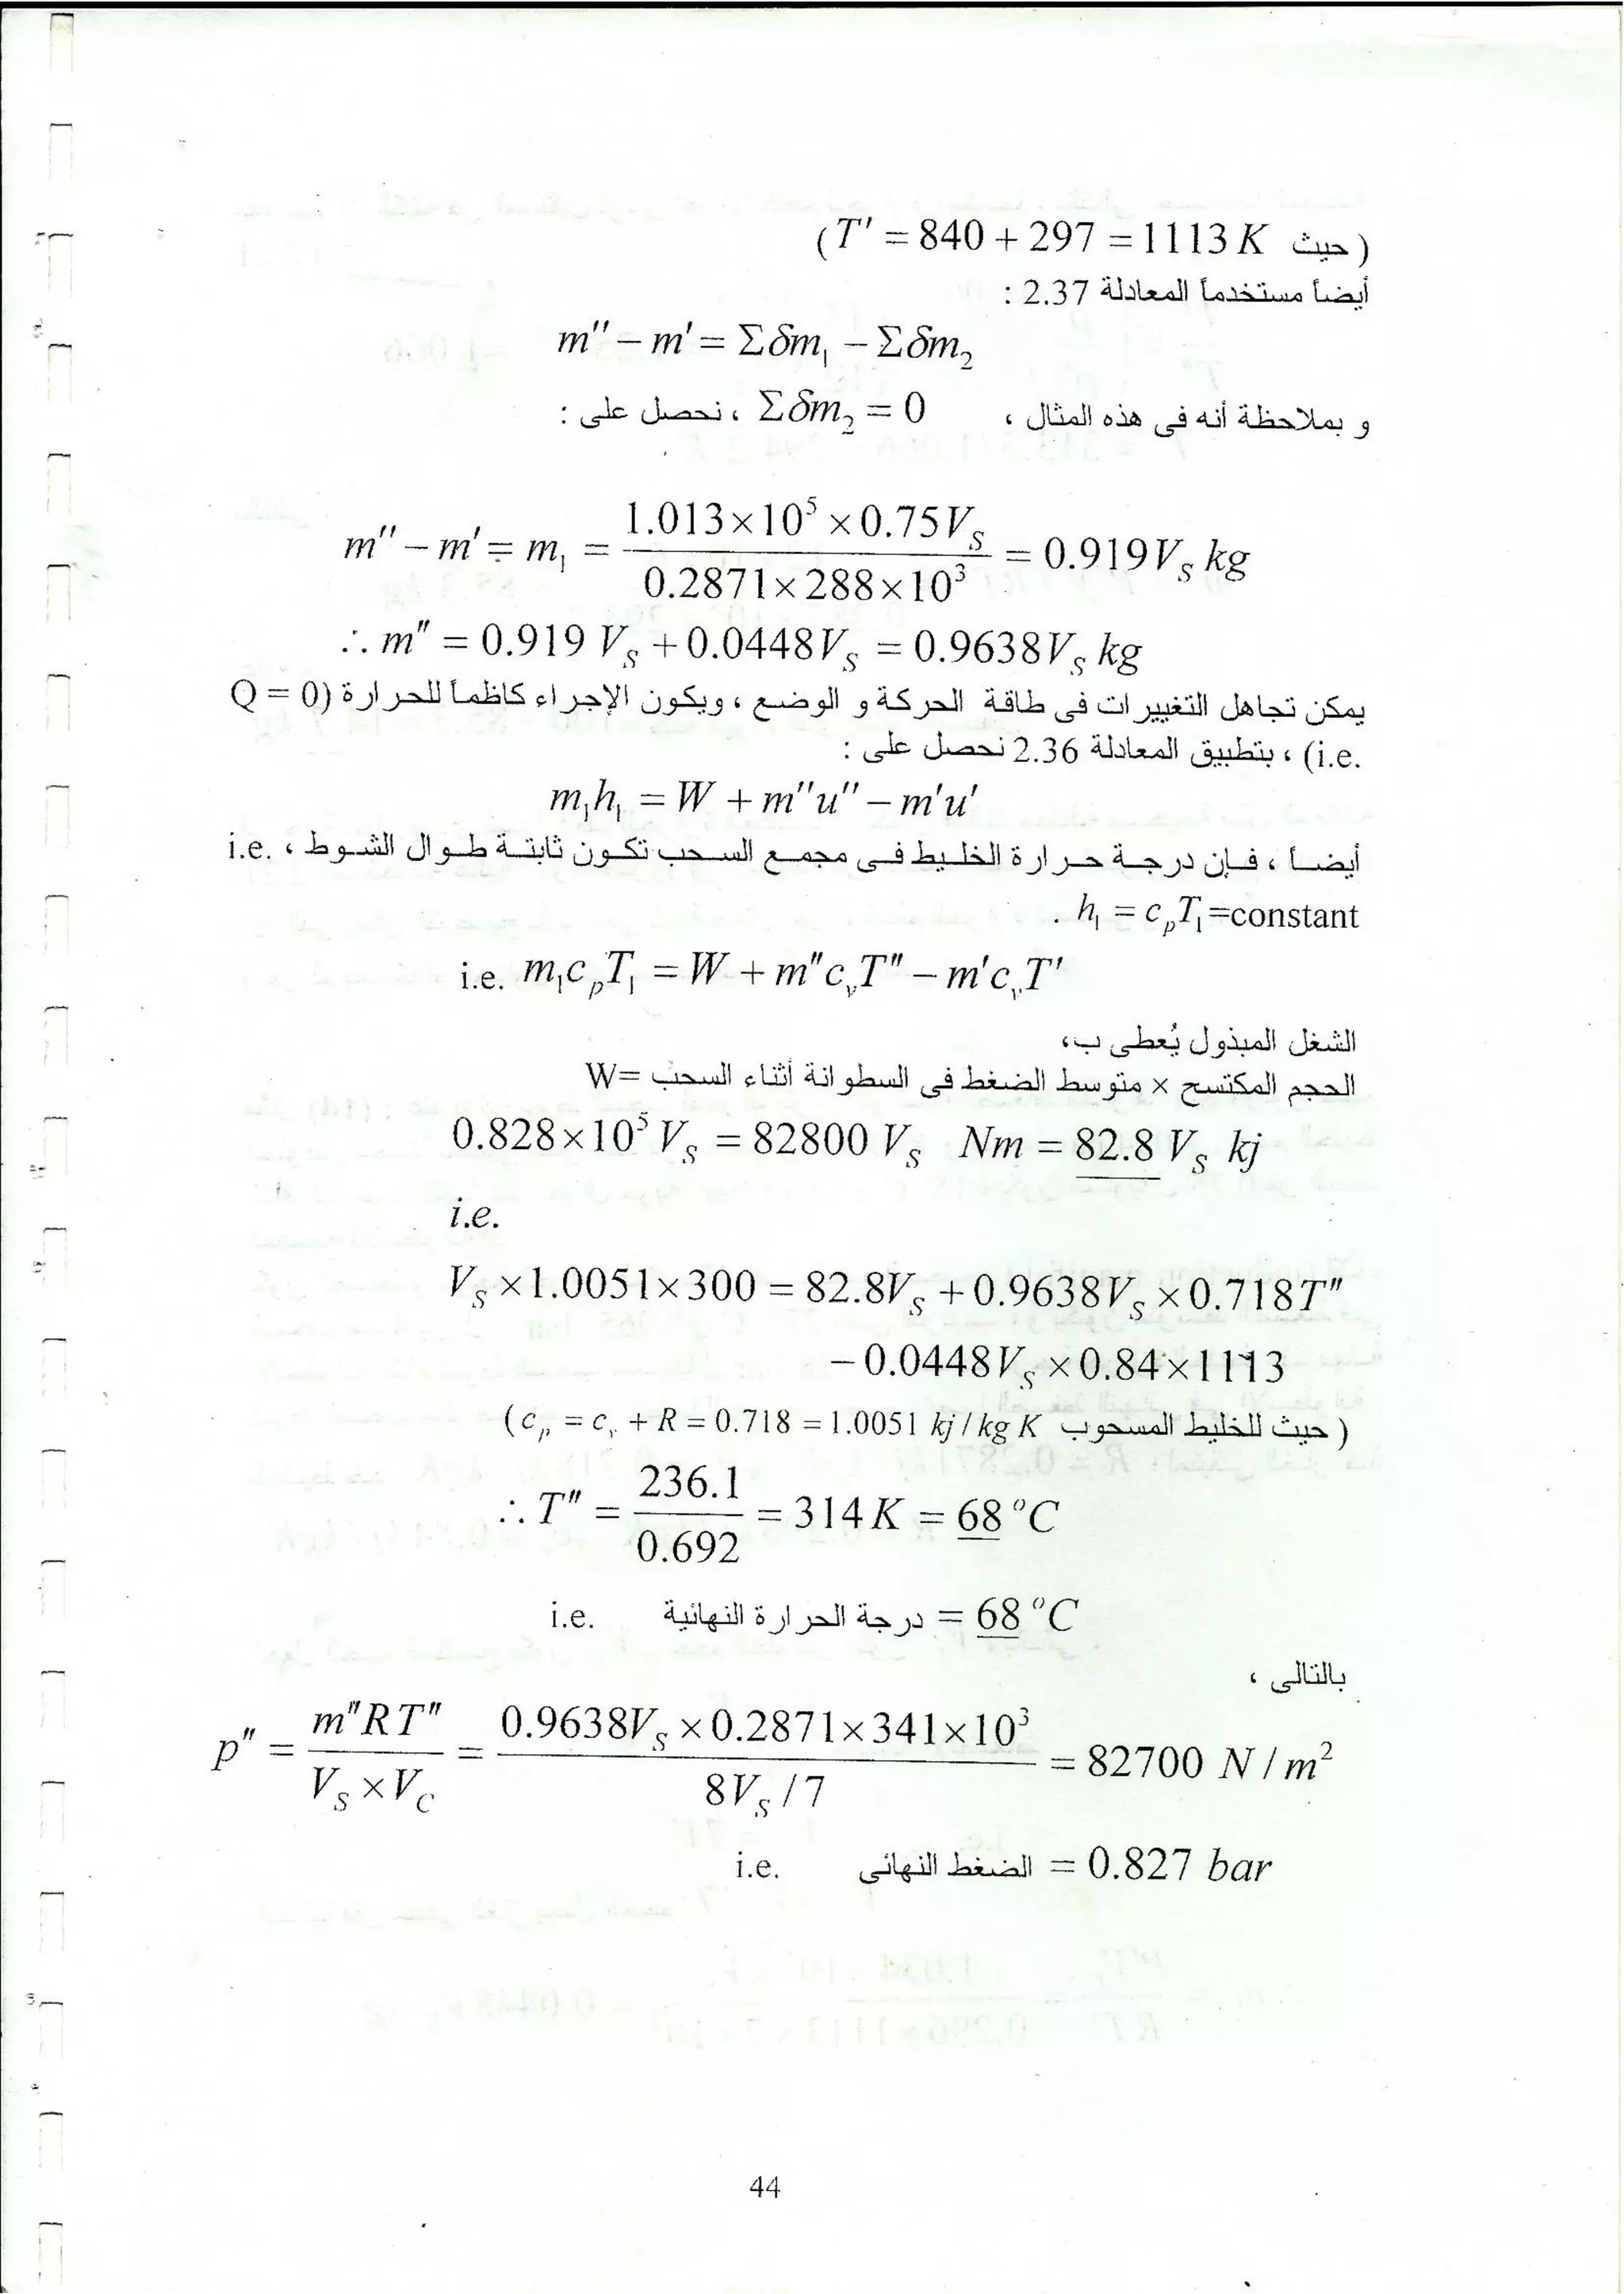 ( حيث T' = 840 + 297 = 1113 K )
أيضاً مستخدماً المعادلة 2.37 :
m'' − m' = Σδm₁ − Σδm₂
و بملاحظة أنه فى هذه المثال ، Σδm₂ = 0 ، نحصل على :
m'' − m' = m₁ = (1.013×10⁵ × 0.75V_S) / (0.2871×288×10³) = 0.919V_S kg
∴ m'' = 0.919 V_S + 0.0448V_S = 0.9638V_S kg
يمكن تجاهل التغييرات فى طاقة الحركة و الوضع ، ويكون الإجراء كاظماً للحرارة (Q = 0
i.e.) ، بتطبيق المعادلة 2.36 نحصل على :
m₁h₁ = W + m''u'' − m'u'
أيضاً ، فإن درجة حرارة الخليط فى مجمع السحب تكون ثابتة طوال الشوط ، i.e.
. h₁ = c_pT₁ =constant
i.e. m₁c_pT₁ = W + m''c_vT'' − m'c_vT'
الشغل المبذول يُعطى ب،
الحجم المكتسح × متوسط الضغط فى السطوانة أثناء السحب =W
0.828×10⁵ V_S = 82800 V_S Nm = 82.8 V_S kj
i.e.
V_S ×1.0051×300 = 82.8V_S + 0.9638V_S × 0.718T''
− 0.0448V_S × 0.84×1113
( حيث للخليط المسحوب c_p = c_v + R = 0.718 = 1.0051 kj / kg K )
∴ T'' = 236.1 / 0.692 = 314 K = 68 °C
i.e. درجة الحرارة النهائية = 68 °C
بالتالى ،
p'' = m''RT'' / (V_S × V_C) = (0.9638V_S × 0.2871×341×10³) / (8V_S / 7) = 82700 N / m²
i.e. الضغط النهائى = 0.827 bar
44